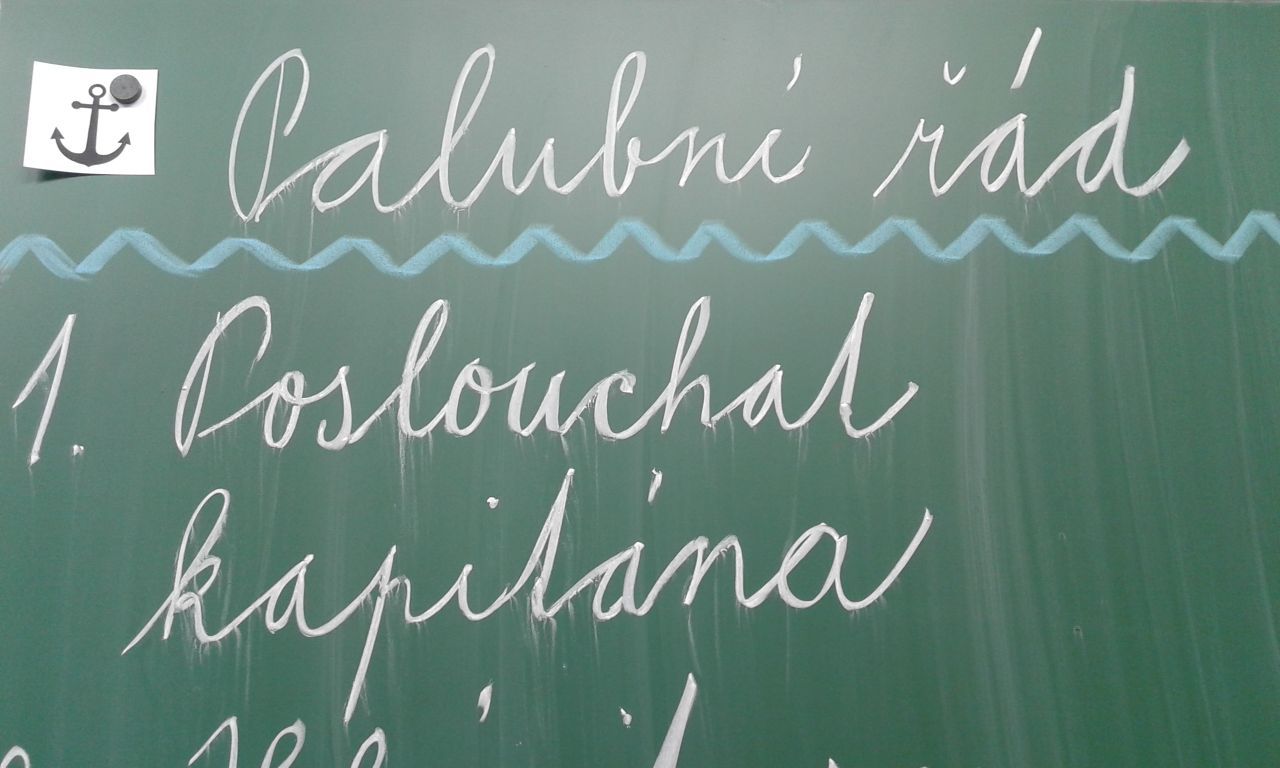 Palubní řád
1. Poslouchat
kapitána